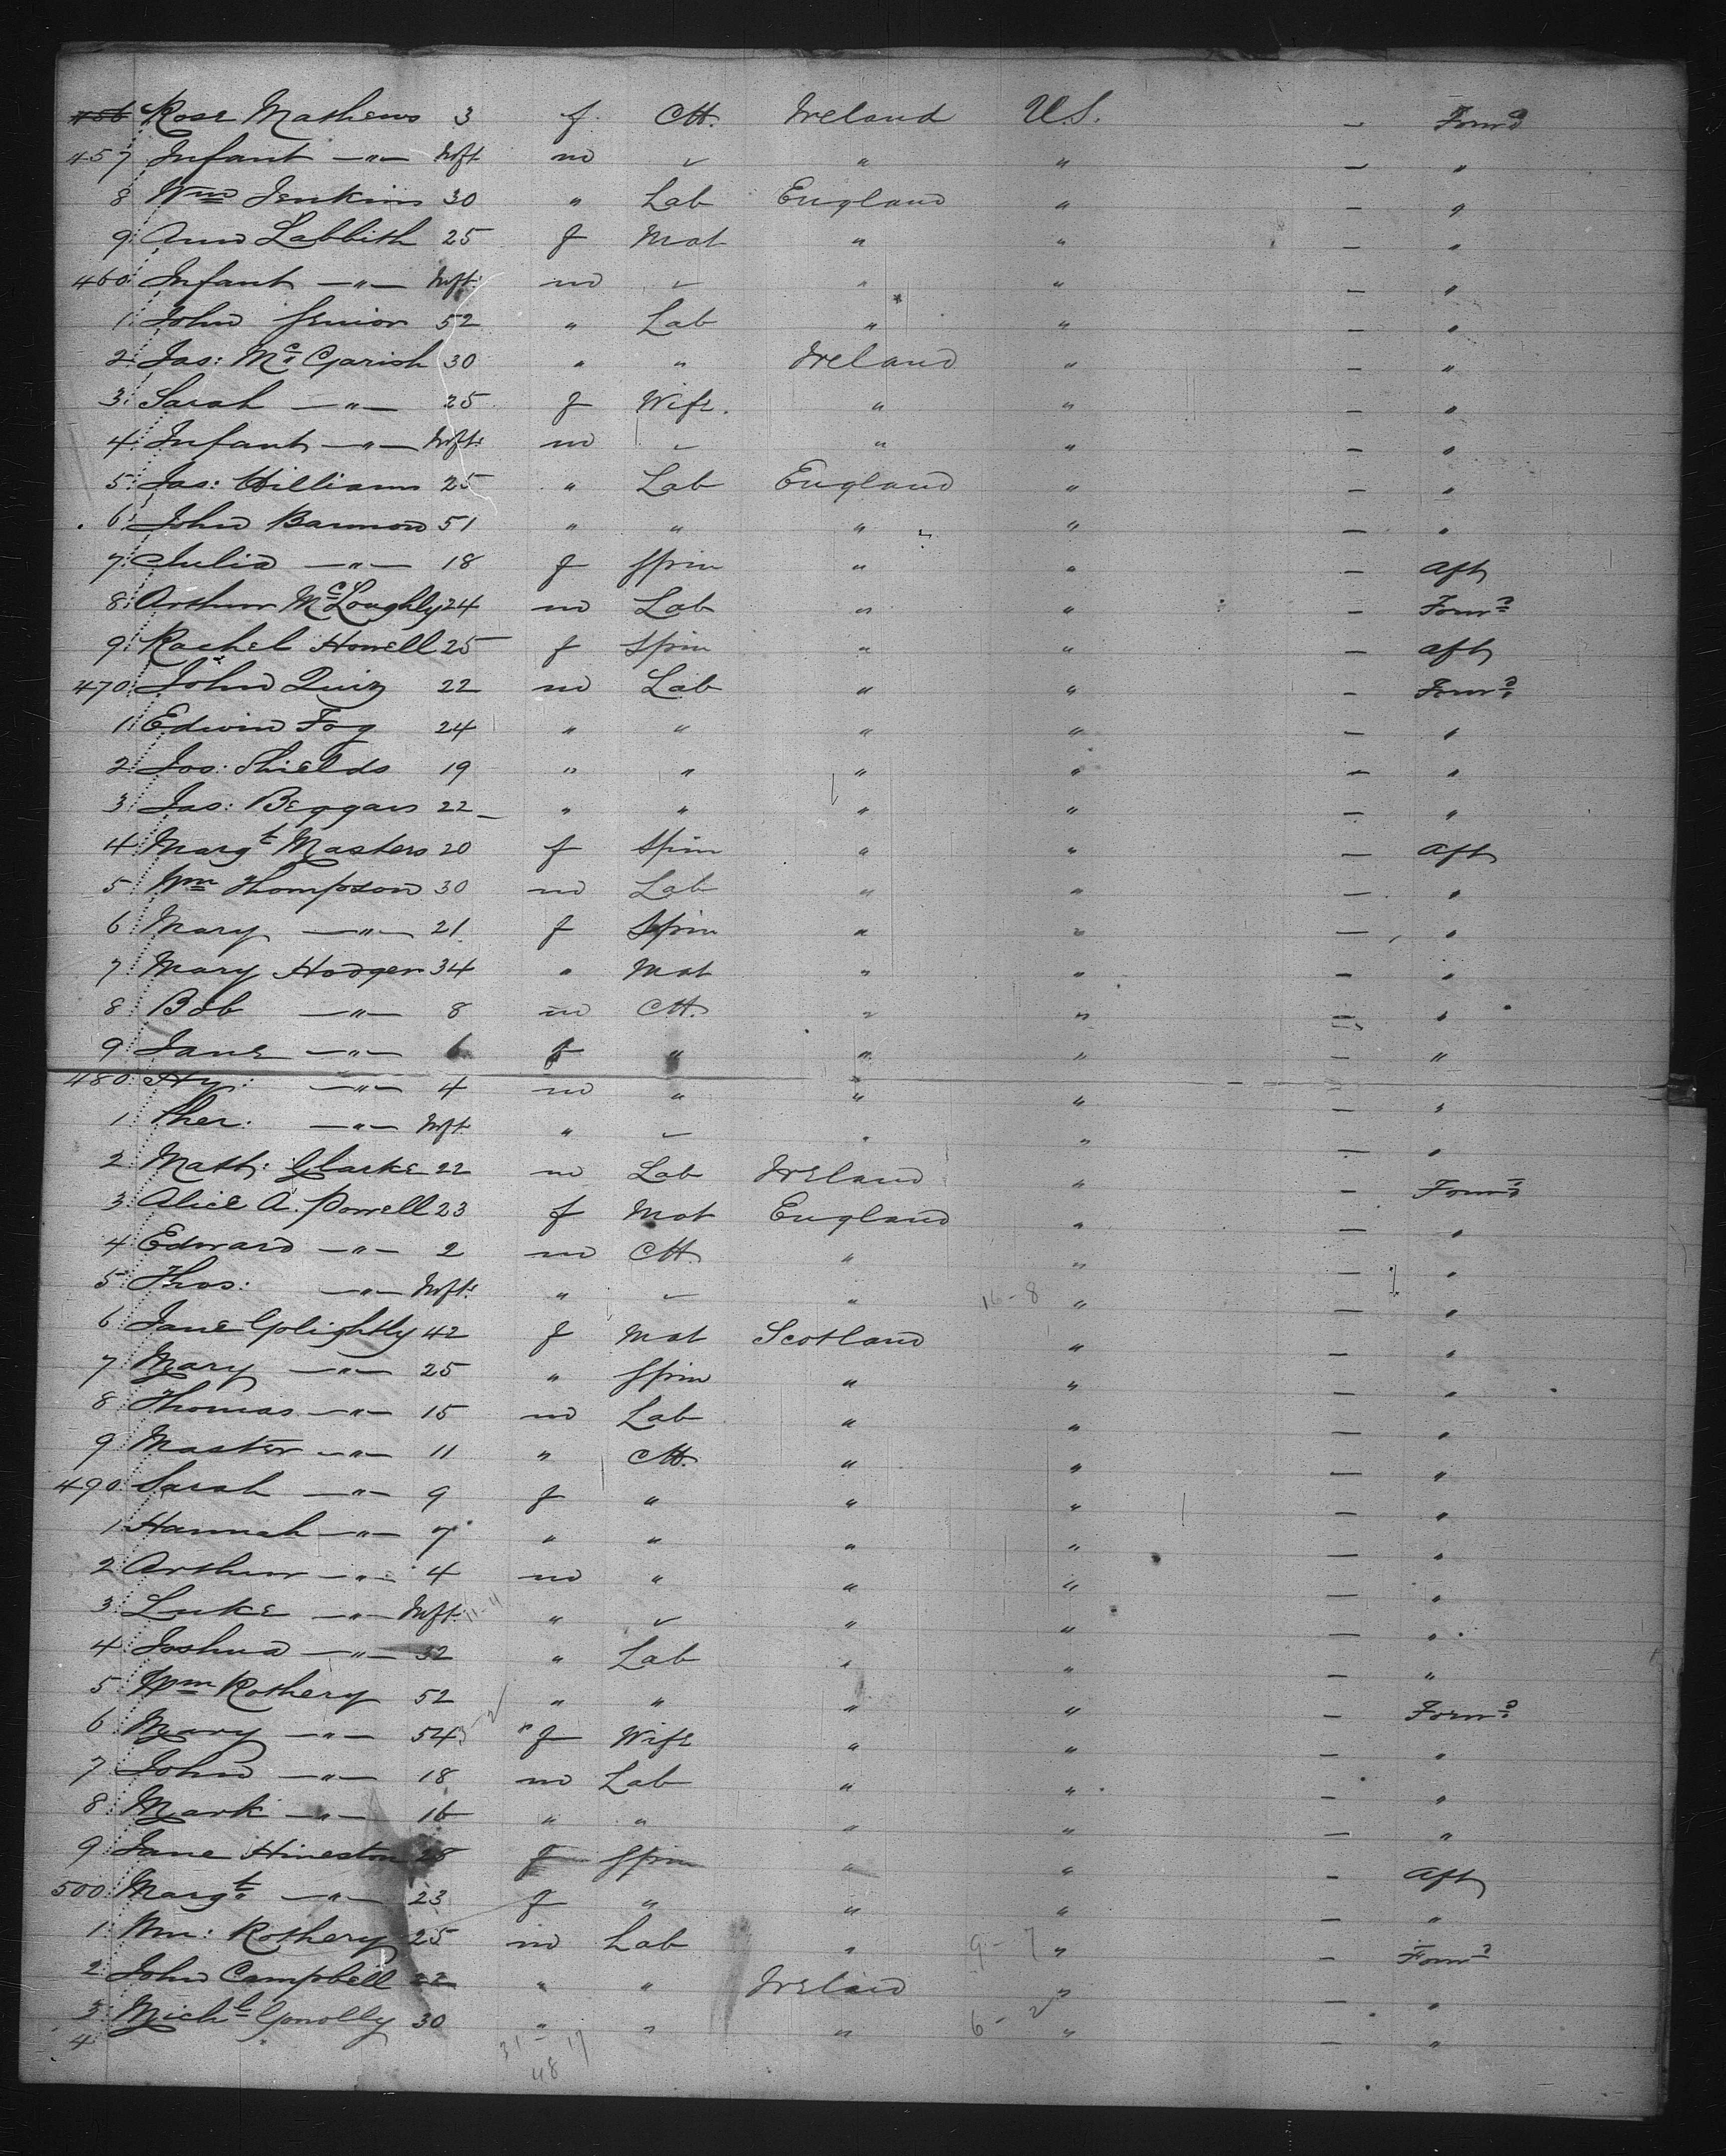 456 Rose Mathews 3 f Ch. Ireland U.S. — Forwd
457 Infant —"— Inft m ✓ " " — "
8 Wm Jenkins 30 " Lab England " — "
9 Ann Labbith 25 f Mat " " — "
460 Infant —"— Inft: m ✓ " " — "
1 John Senior 52 " Lab " " — "
2 Jas: McGarish 30 " " Ireland " — "
3 Sarah —"— 25 f Wife. " " — "
4 Infant —"— Inft: m ✓ " " — "
5 Jas: Williams 25 " Lab England " — "
6 John Bannon 51 " " " " — "
7 Julia —"— 18 f Spin " " — aft
8 Arthur McLoughly 24 m Lab " " — Forwd
9 Rachel Howell 25 f Spin " " — aft
470 John Quiz 22 m Lab " " — Forwd
1 Edwin Fog 24 " " " " — "
2 Jos: Shields 19 " " " " — "
3 Jas: Beggans 22 " " " " — "
4 Margt Masters 20 f Spin " " — aft
5 Wm Thompson 30 m Lab " " — "
6 Mary —"— 21 f Spin " " — "
7 Mary Hodgen 34 " Mat " " — "
8 Bob —"— 8 m Ch. " " — "
9 Jane —"— 6 f " " " — "
480 Hy: —"— 4 m " " " — "
1 Ther: —"— Inft " ✓ " " — "
2 Matth: Clarke 22 m Lab Ireland " — Forwd
3 Alice A. Powell 23 f Mat England " — "
4 Edward —"— 2 m Ch. " " — "
5 Thos: —"— Inft: " ✓ " 16-8 " — "
6 Jane Golightly 42 f Mat Scotland " — "
7 Mary —"— 25 " Spin " " — "
8 Thomas —"— 15 m Lab " " — "
9 Master —"— 11 " Ch. " " — "
490 Sarah —"— 9 f " " " — "
1 Hannah —"— 7 " " " " — "
2 Arthur —"— 4 m " " " — "
3 Luke —"— Inft: 11-4 " ✓ " " — "
4 Joshua —"— 32 " Lab " " — "
5 Wm Rothery 52 " " " " — Forwd
6 Mary —"— 54 f Wife " " — "
7 John —"— 18 m Lab " " — "
8 Mark —"— 16 " " " " — "
9 Jane Hineston 25 f Spin " " — aft
500 Margt —"— 23 f " " " — "
1 Wm: Rothery 25 m Lab " 9-7 " — Forwd
2 John Campbell 22 " " Ireland " — "
3 Michl Conolly 30 " " " 6-2 " — "
4 31-17
48